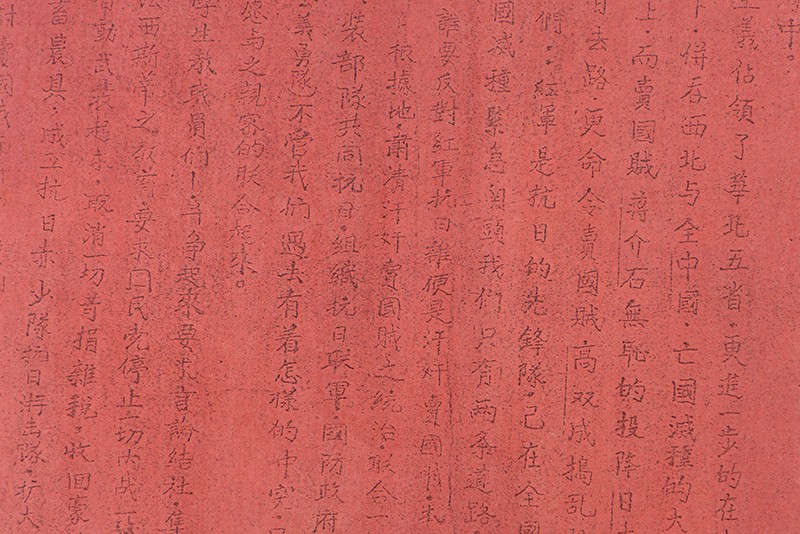 中。
主義佔領了華北五省·更進一步的在
併吞西北与全中國·亡國滅種的大
上·而賣國賊蔣介石無恥的投降日
去路·更命令賣國賊·高双成搗乱
們·紅軍是抗日的先鋒隊·己在全國
國滅種緊急関頭我们只有兩条道路
誰要反對紅軍抗日誰便是汗奸賣國賊·
根據地·肅清汗奸賣國賊之統治·联合一
裝部隊共同抗日·組織抗日联軍·國防政府
義勇隊不管我们過去有着怎樣的
与之親密的联合起來。
学生教職員们！爭起來要求言論結社·集
法西斯蒂之教育·要求囯民党停止一切内战一
動武裝起來·取消一切苛捐雜稅·收回蒙
畜農具·成立抗日赤少隊抗日游击隊·扩大
賣國